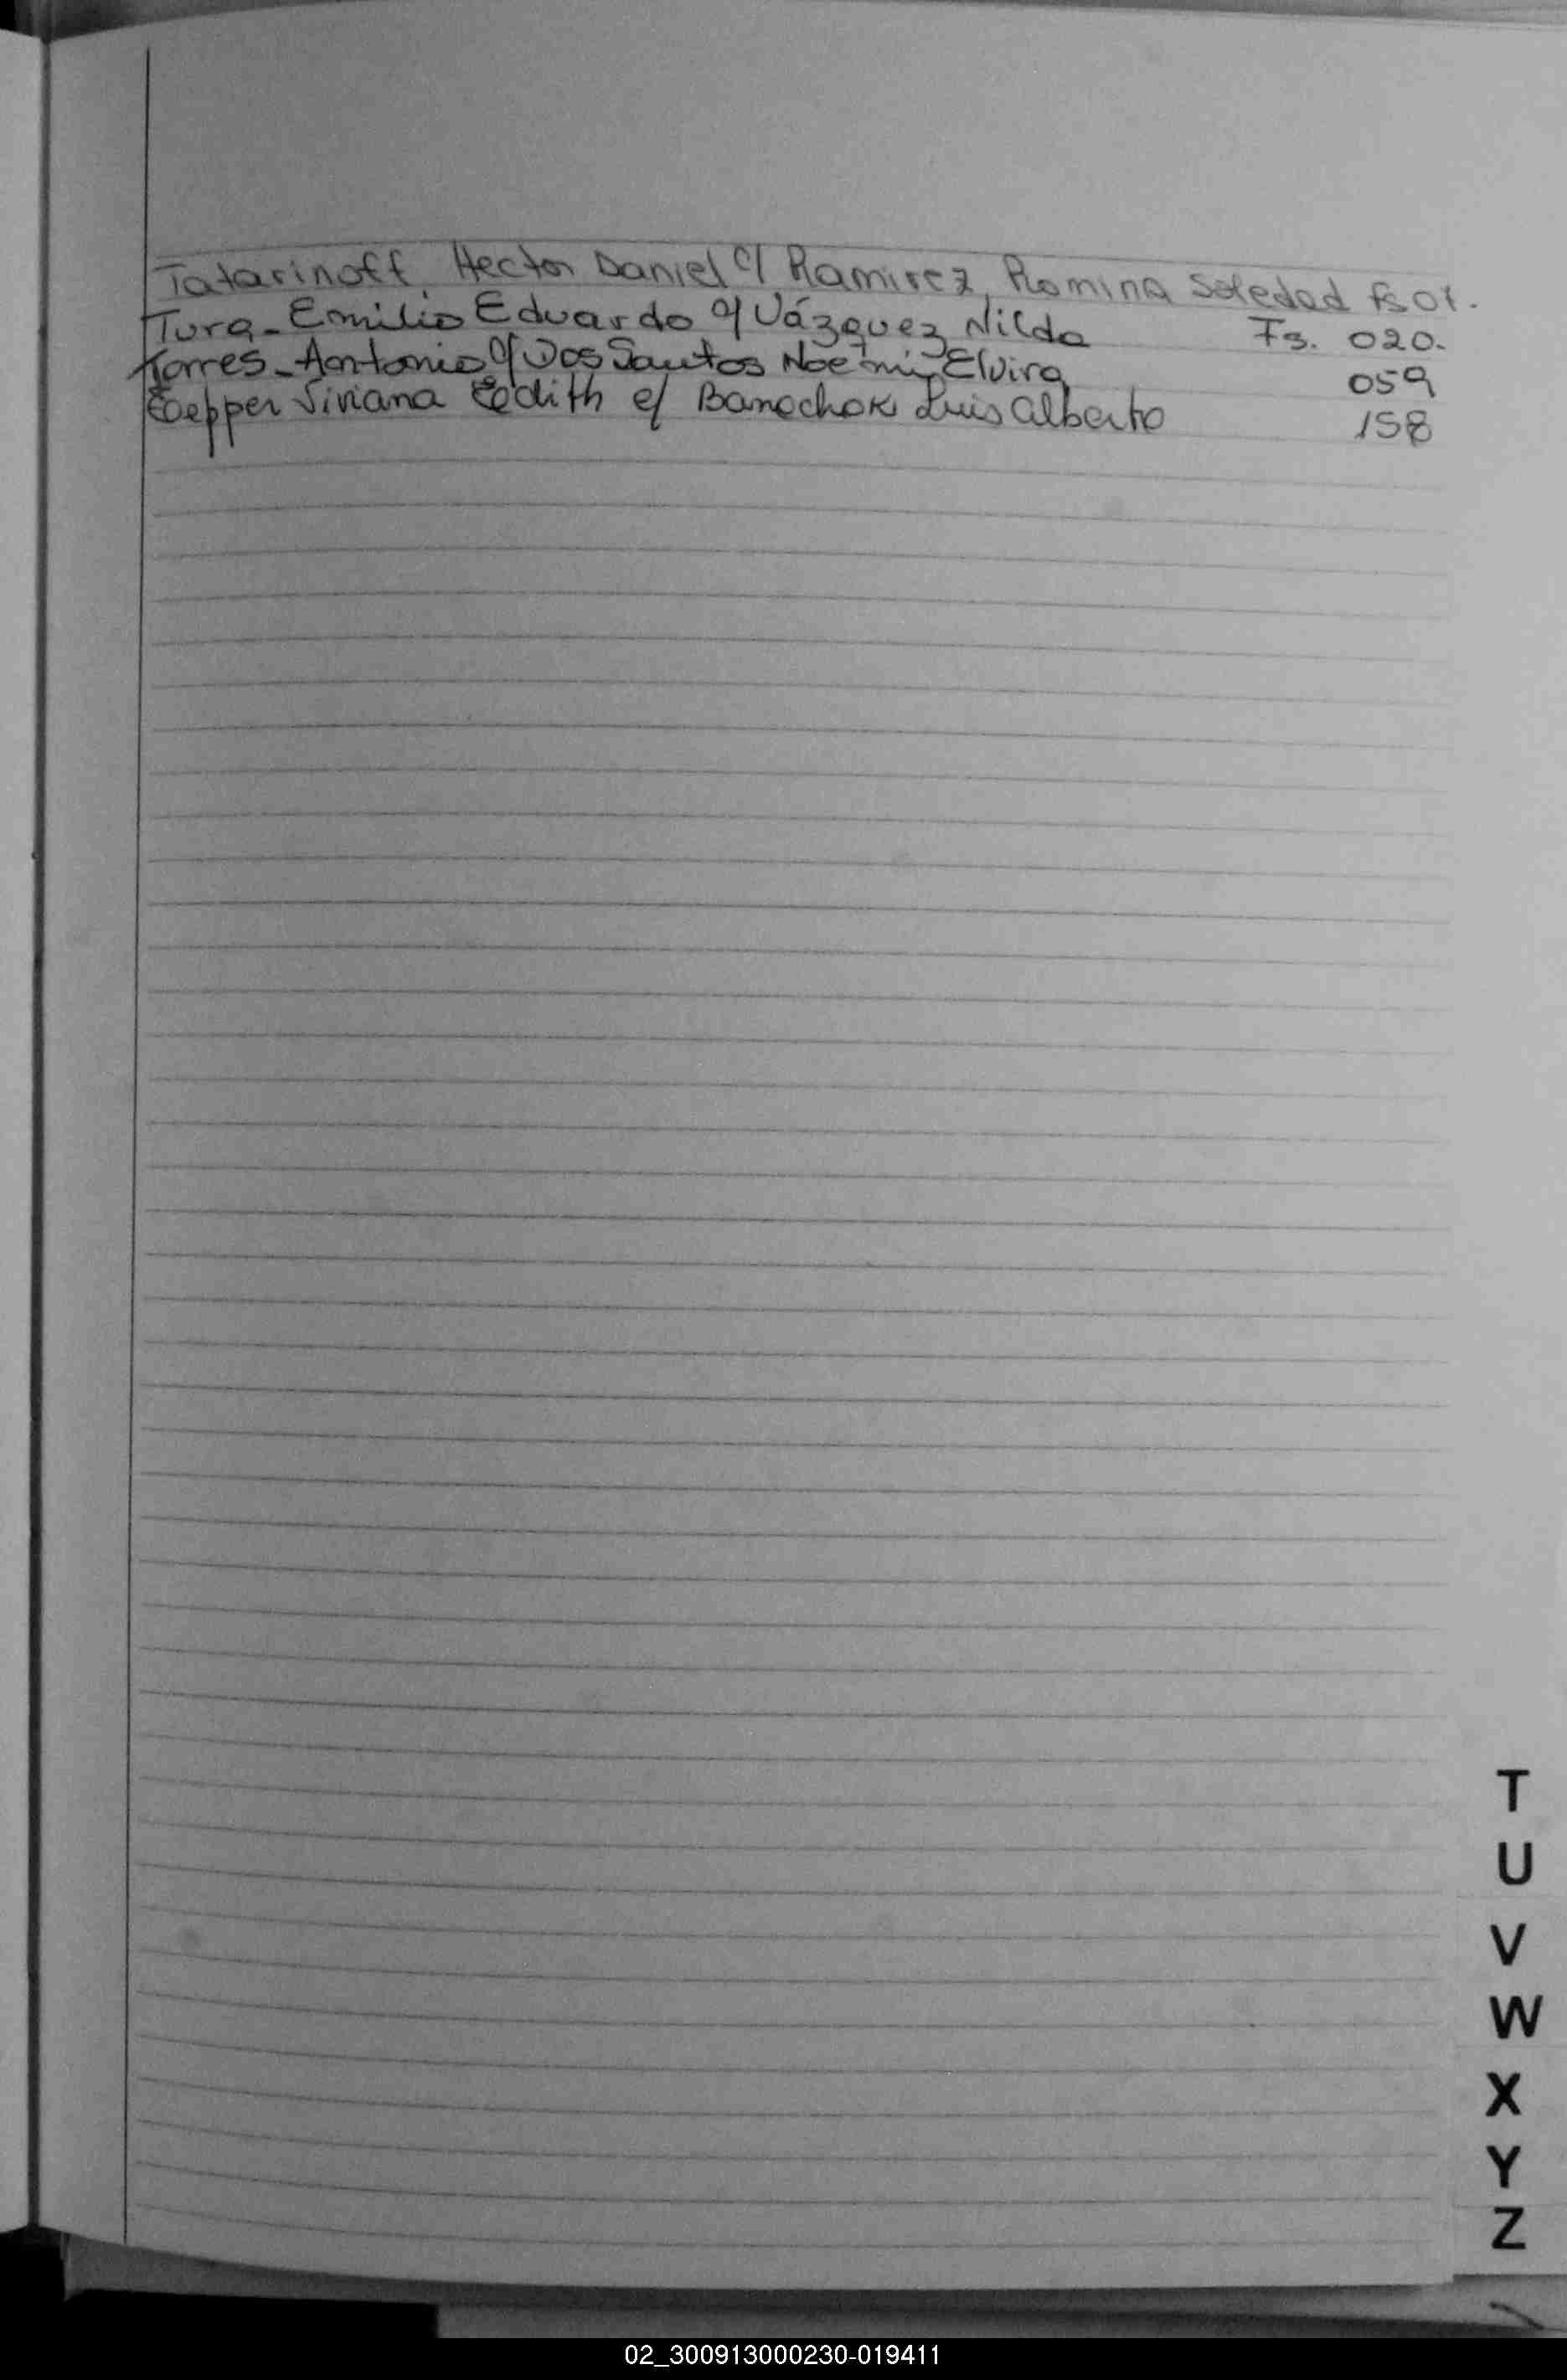 Tatarinoff, Hector Daniel c/ Ramirez, Romina Soledad fs 01.
Tura - Emilio Eduardo c/ Vázquez, Nilda Fs. 020.
Torres - Antonio c/ Dos Santos Noemi Elvira 059
Toepper Viviana Eedith c/ Luis Alberto 158
T
U
V
W
X
Y
Z
02_300913000230-019411